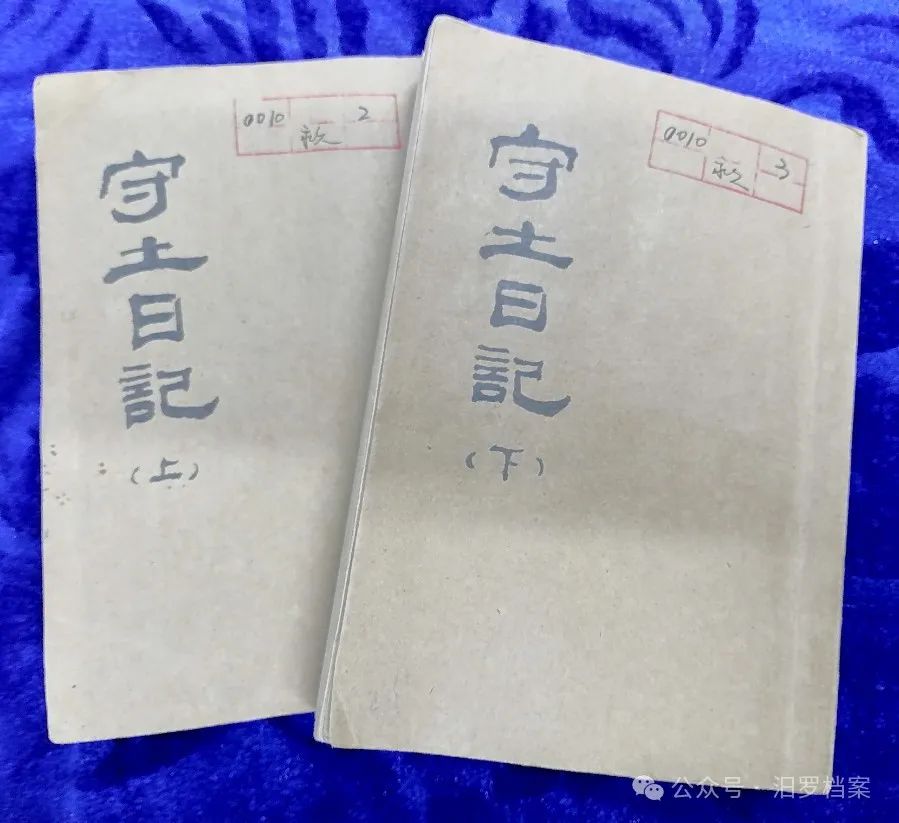 0010 2
永久
守土日記
(上)
0010 3
永久
守土日記
(下)
公众号 · 汨罗档案